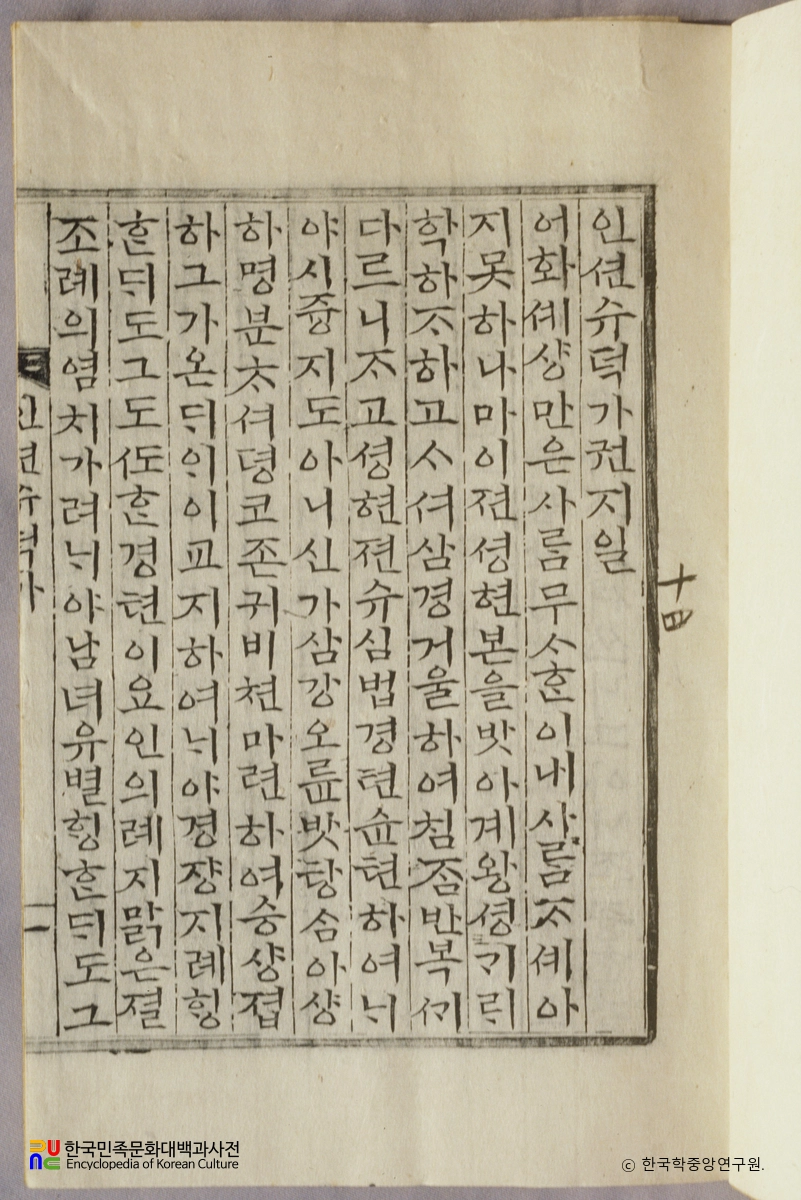 인션슈덕가권지일
어화셰샹만은사ᄅᆞᆷ무ᄉᆞᄒᆞᆫ이내사ᄅᆞᆷᄌᆞ셰아
지못하나마이젼셩현본을밧아계왕셩ᄀᆡ ᄅᆡ
학하ᄌᆞ하고ᄉᆞ셔삼경거울하여침ᄌᆞᆷ반복
다르니ᄌᆞ고셩현젼슈심법경텬슌텬하여ᄂᆡ
야시즁지도아니신가삼강오륜밧탕ᄉᆞᆷ아샹
하명분ᄎᆞ셔뎡코존귀비쳔마련하여숭샹졉
하그가온ᄃᆡ인이교지하여ᄂᆡ야경쟝지례ᄒᆡᆼ
ᄒᆞᆫᄃᆡ도그도ᄯᅩᄒᆞᆫ경텬이요인의례지맑은졀
조례의염치가려ᄂᆡ야남녀유별ᄒᆡᆼᄒᆞᆫᄃᆡ도그
十四
一
한국민족문화대백과사전
Encyclopedia of Korean Culture
© 한국학중앙연구원.